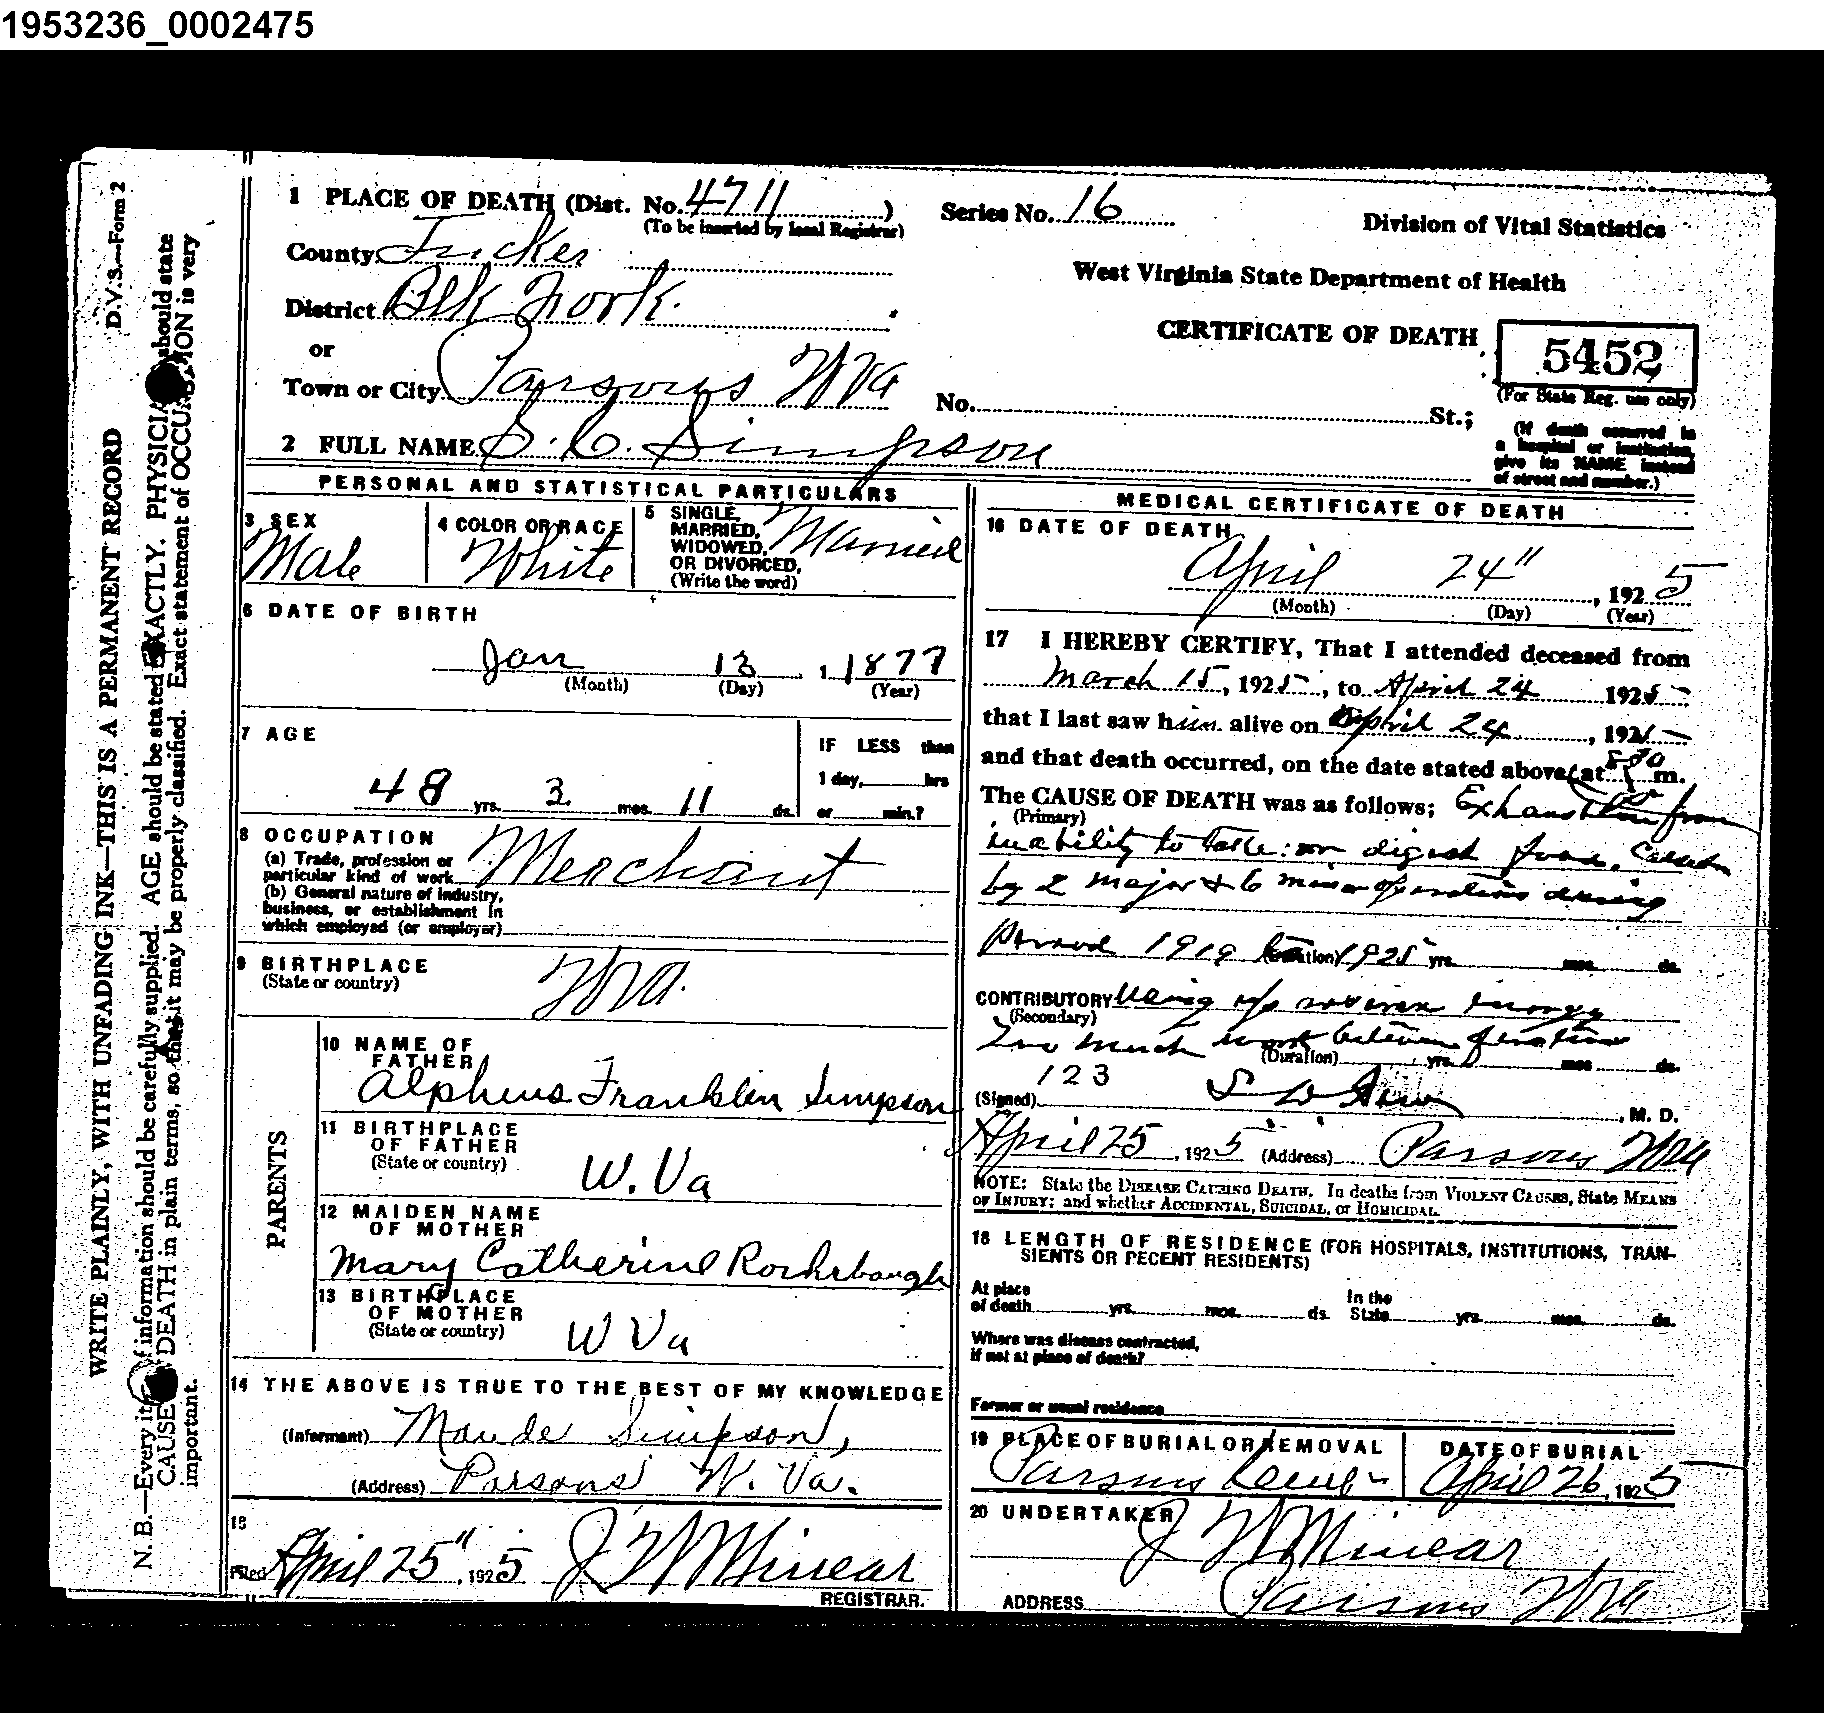 1953236_0002475
D.V.S.—Form 2
WRITE PLAINLY, WITH UNFADING INK—THIS IS A PERMANENT RECORD
N. B.—Every it of information should be carefully supplied. AGE should be stated EXACTLY. PHYSICIA should state
CAUSE DEATH in plain terms, so that it may be properly classified. Exact statement of OCCUPATION is very
important.
1 PLACE OF DEATH (Dist. No. 4711)
(To be inserted by local Registrar)
Series No. 16
Division of Vital Statistics
County Tucker
West Virginia State Department of Health
District Blk Fork.
CERTIFICATE OF DEATH
5452
(For State Reg. use only)
or
Town or City Parsons WVa
No. St.;
(If death occurred in
a hospital or institution,
give its NAME instead
of street and number.)
2 FULL NAME S. C. Simpson
PERSONAL AND STATISTICAL PARTICULARS
3 SEX
Male
4 COLOR OR RACE
White
5 SINGLE,
MARRIED,
WIDOWED,
OR DIVORCED,
(Write the word)
Married
6 DATE OF BIRTH
Jan 13, 1877
(Month) (Day) (Year)
7 AGE
48 yrs. 3 mos. 11 ds.
IF LESS than
1 day, hrs
or min.?
8 OCCUPATION
(a) Trade, profession or
particular kind of work
Merchant
(b) General nature of industry,
business, or establishment in
which employed (or employer)
9 BIRTHPLACE
(State or country)
WVa.
PARENTS
10 NAME OF
FATHER
Alpheus Franklin Simpson
11 BIRTHPLACE
OF FATHER
(State or country)
W. Va
12 MAIDEN NAME
OF MOTHER
Mary Catherine Rohrbaugh
13 BIRTHPLACE
OF MOTHER
(State or country)
W Va
14 THE ABOVE IS TRUE TO THE BEST OF MY KNOWLEDGE
(Informant) Maude Simpson,
(Address) Parsons W. Va.
15
Filed April 25", 1925 J W Minear
REGISTRAR.
MEDICAL CERTIFICATE OF DEATH
16 DATE OF DEATH
April 24", 1925
(Month) (Day) (Year)
17 I HEREBY CERTIFY, That I attended deceased from
March 15, 1925, to April 24 1925
that I last saw him alive on April 24, 192
and that death occurred, on the date stated above, at m.
The CAUSE OF DEATH was as follows; Exhaustion from
(Primary)
inability to take or digest food, Caused
by 2 major & 6 minor operations during
Period 1919 to 1925 yrs. mos. ds.
CONTRIBUTORY Using up nervous energy
(Secondary)
Too much work between
(Duration) yrs. mos. ds.
123
(Signed) , M. D.
April 25, 1925 (Address) Parsons WVa
NOTE: State the DISEASE CAUSING DEATH. In deaths from VIOLENT CAUSES, State MEANS
OF INJURY; and whether ACCIDENTAL, SUICIDAL, OR HOMICIDAL.
18 LENGTH OF RESIDENCE (FOR HOSPITALS, INSTITUTIONS, TRAN-
SIENTS OR RECENT RESIDENTS)
At place
of death yrs. mos. ds.
In the
State yrs. mos. ds.
Where was disease contracted,
if not at place of death?
Former or usual residence
19 PLACE OF BURIAL OR REMOVAL
Parsons
DATE OF BURIAL
April 26, 1925
20 UNDERTAKER
J W Minear
ADDRESS Parsons WVa